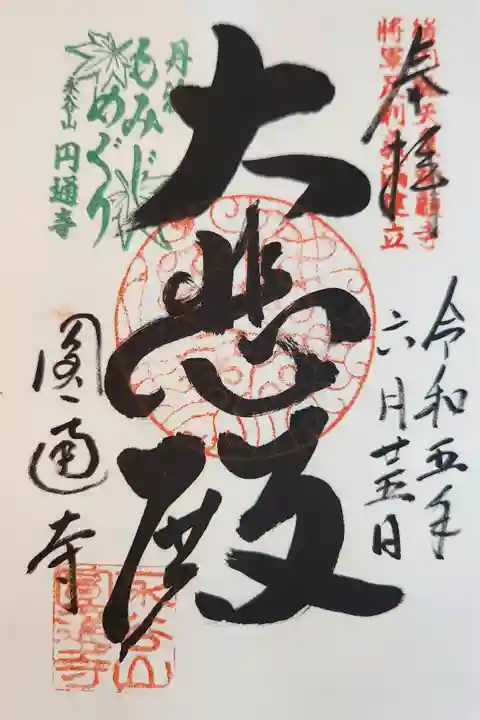 奉拝
将軍足利義満建立
令和五年
六月廿五日
大悲殿
丹波
もみじ
めぐり
永谷山
円通寺
圓通寺
永谷山
圓通寺